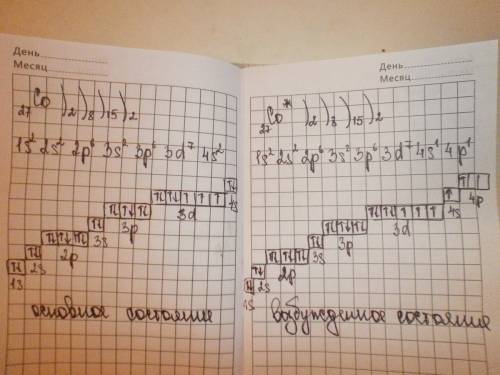 День
Месяц
27Co )2 )8 )15 )2
1s² 2s² 2p⁶ 3s² 3p⁶ 3d⁷ 4s²
4s
3d
3p
3s
2p
2s
1s
основное состояние
День
Месяц
27Co* )2 )8 )15 )2
1s² 2s² 2p⁶ 3s² 3p⁶ 3d⁷ 4s¹ 4p¹
4p
4s
3d
3p
3s
2p
2s
возбужденное состояние